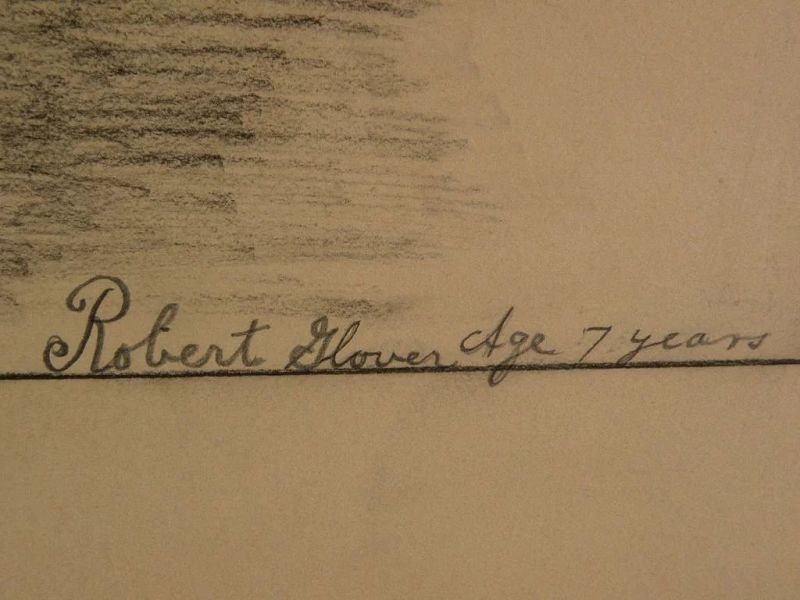 Robert Glover Age 7 years